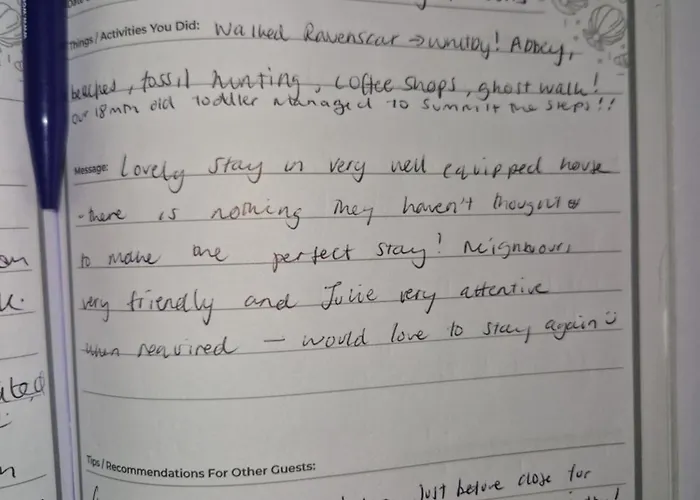 Things / Activities You Did: Walked Ravenscar → Whitby! Abbey,
beaches, fossil hunting, coffee shops, ghost walk!
our 18mth old toddler managed to summit the steps!!
Message: Lovely stay in very well equipped house
- there is nothing they haven't thought of
to make the perfect stay! Neighbours
very friendly and Julie very attentive
when required — would love to stay again ☺
Tips / Recommendations For Other Guests:
Just before close for